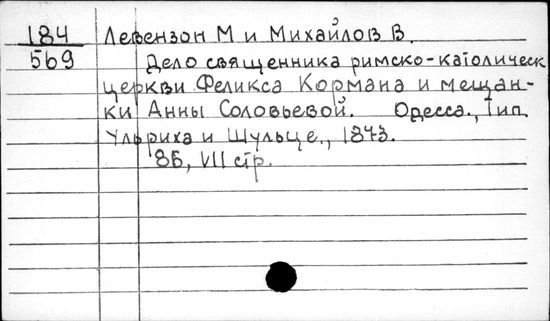 184 Левензон М и Михайлов В.
569 Дело священника римско-католическ
церкви Феликса Кормана и мещан-
ки Анны Соловьевой. Одесса., Тип.
Ульриха и Шульце., 1873.
86, VII стр.